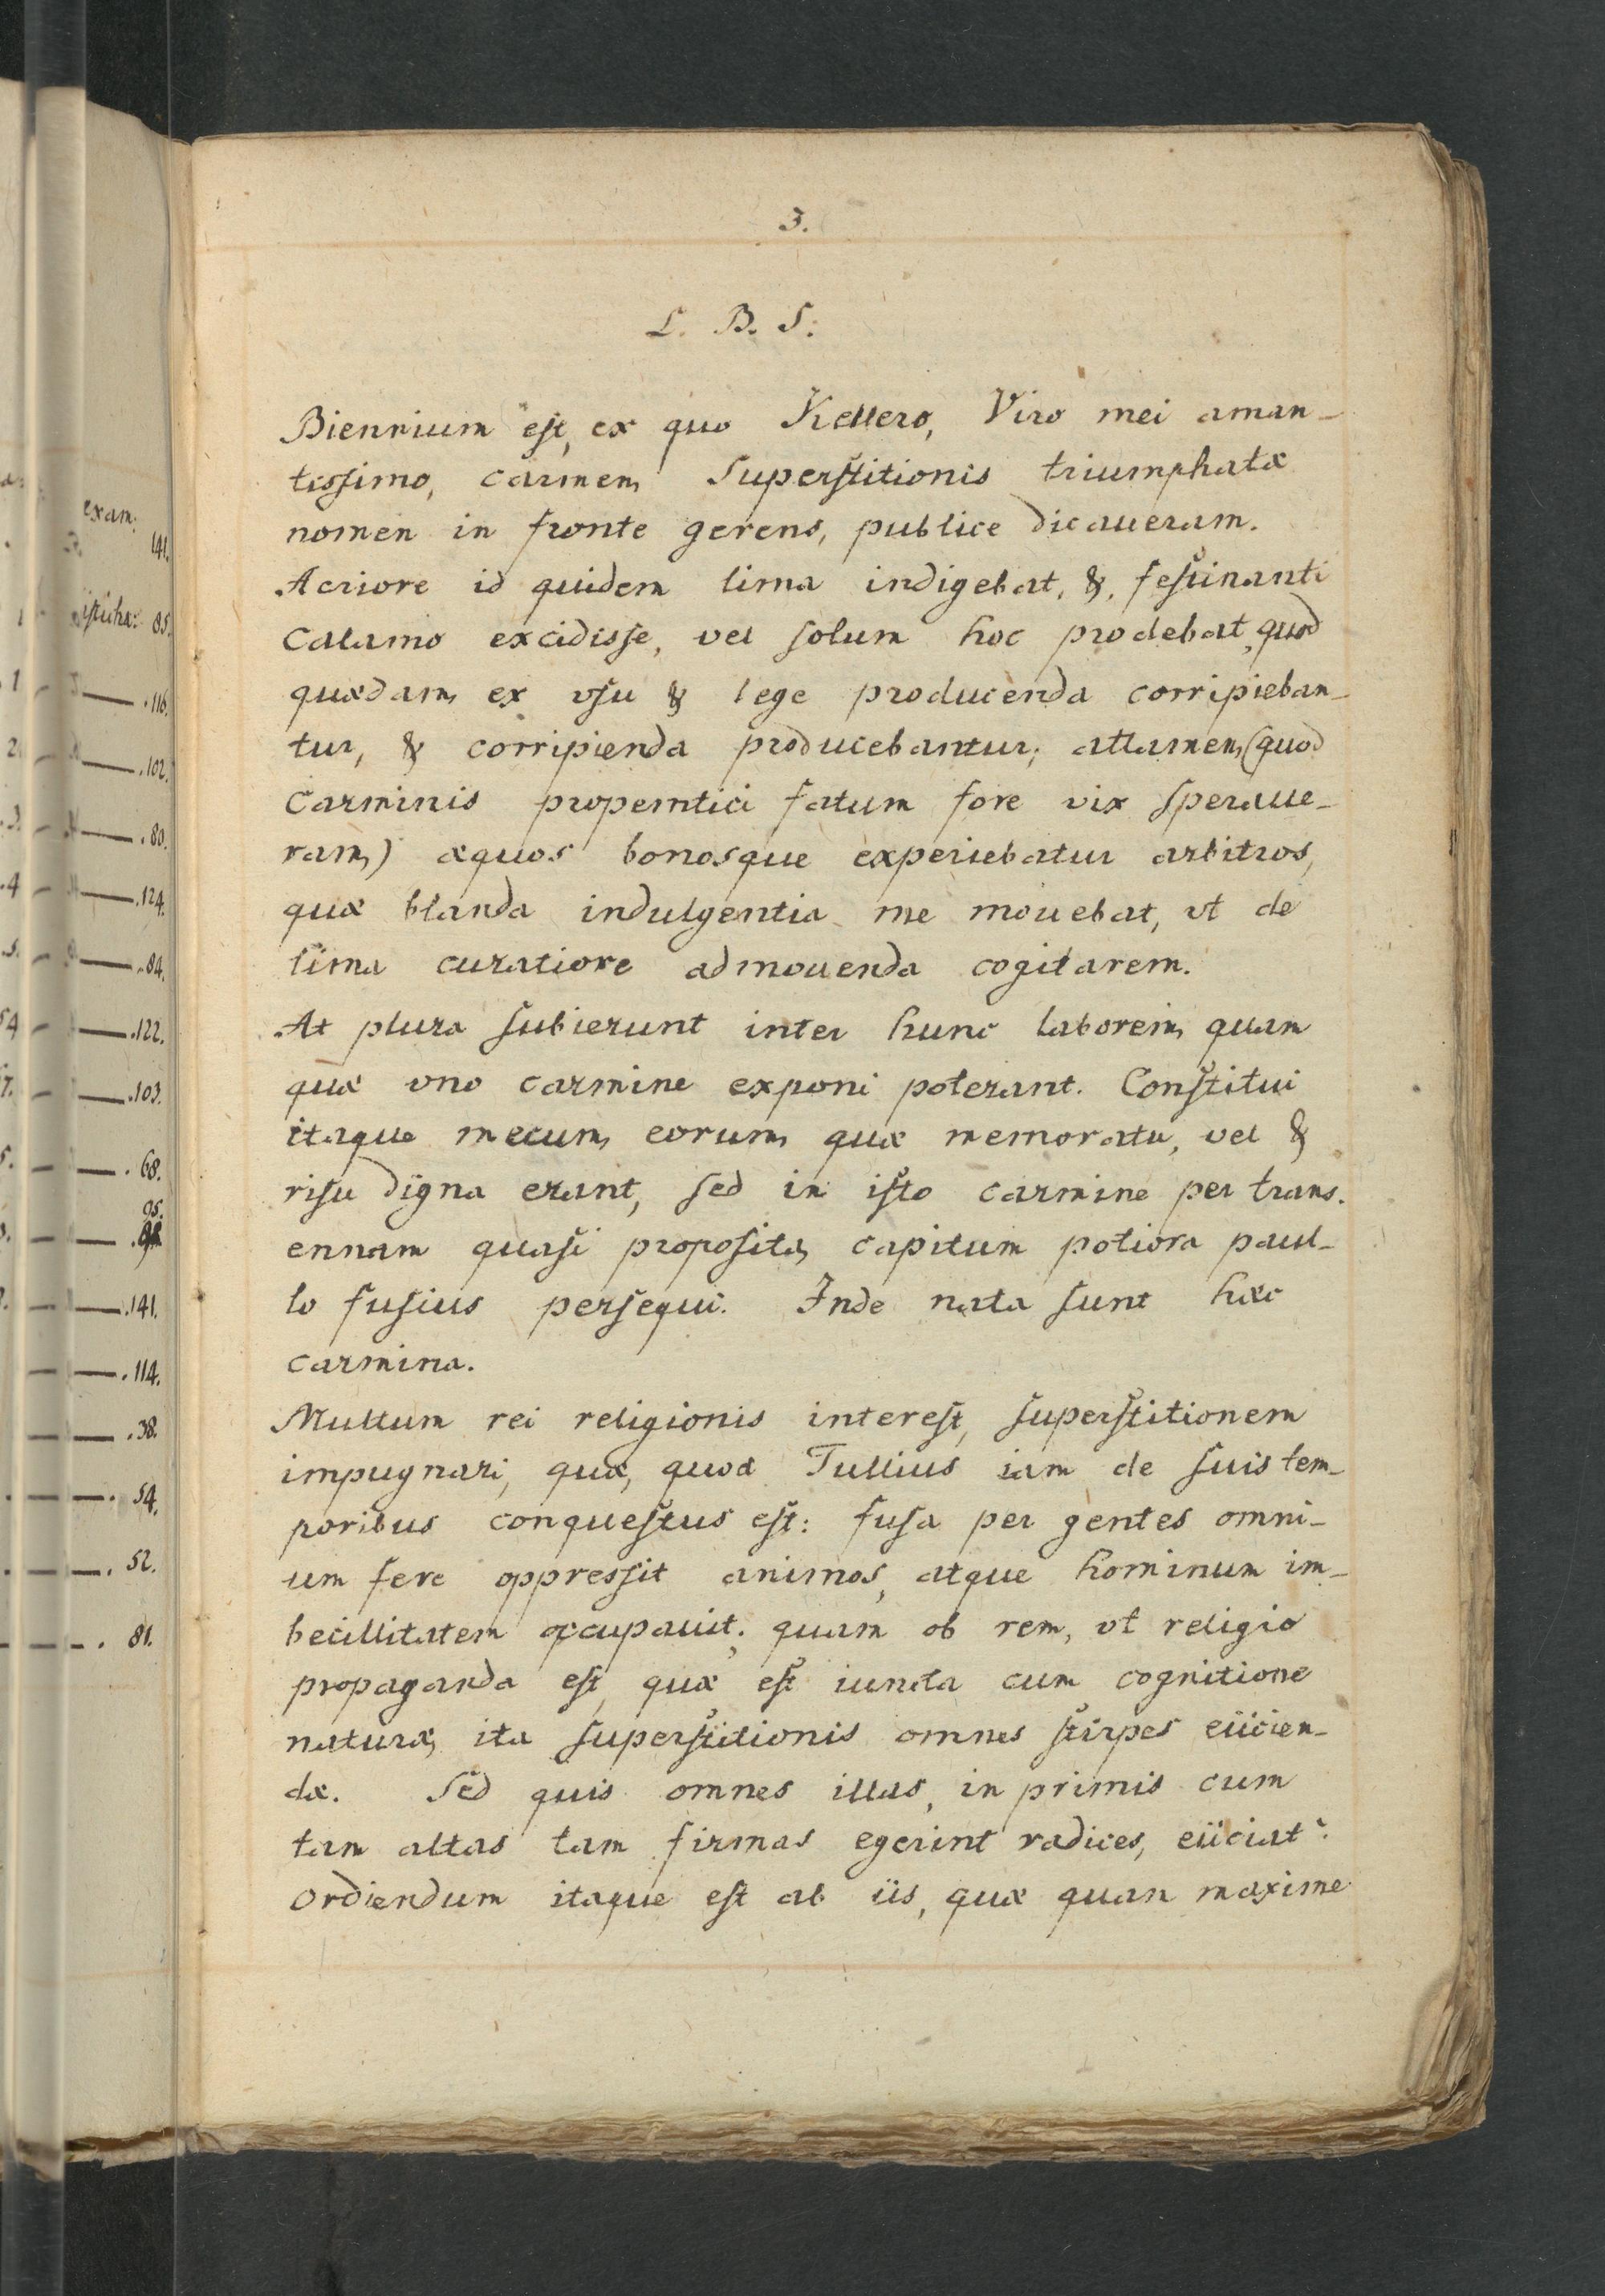 3.
L. B. S.
Biennium est, ex quo Kellero, Viro mei aman-
tissimo, carmen Superstitionis triumphatæ
nomen in fronte gerens, publice dicaueram.
Acriore id quidem lima indigebat, &, festinanti
calamo excidisse, vel solum hoc prodebat, quod
quædam, ex vsu & lege producenda corripieban-
tur, & corripienda producebantur; attamen, (quod
Carminis propemtici fatum fore vix speraue-
ram,) æquos bonosque experiebatur arbitros,
quæ blanda indulgentia me mouebat, vt de
lima curatiore admouenda cogitarem.
At plura subierunt inter hunc laborem, quam
quæ vno carmine exponi poterant. Constitui
itaque mecum, eorum, quæ memoratu, vel &
risu digna erant, sed in isto carmine per trans-
ennam quasi proposita, capitum potiora paul-
lo fusius persequi. Inde nata sunt hæc
carmina.
Multum rei religionis interest, superstitionem
impugnari, quæ, quod Tullius iam de suis tem-
poribus conquestus est: fusa per gentes omni-
um fere oppressit animos, atque hominum im-
becillitatem occupauit; quam ob rem, vt religio
propaganda est, quæ est iuncta cum cognitione
naturæ, ita superstitionis omnes stirpes eiicien-
dæ. Sed quis omnes illas, in primis cum
tam altas tam firmas egerint radices, eiiciat?
Ordiendum itaque est ab iis, quæ quan maxime
exam:
141.
85.
116.
102.
80.
124.
84.
122.
103.
68.
95.
141.
114.
38.
54.
52.
81.